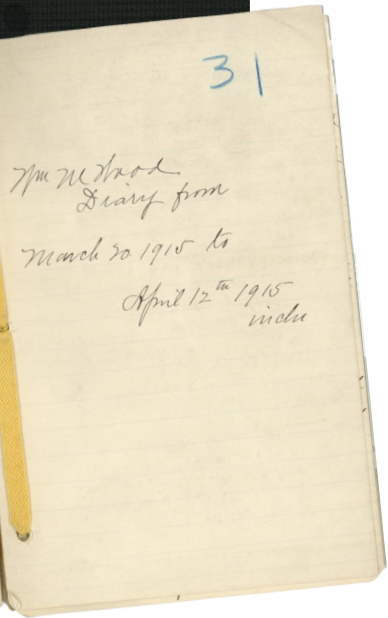 31
Wm M Wood
Diary from
March 20 1915 to
April 12th 1915
inclu